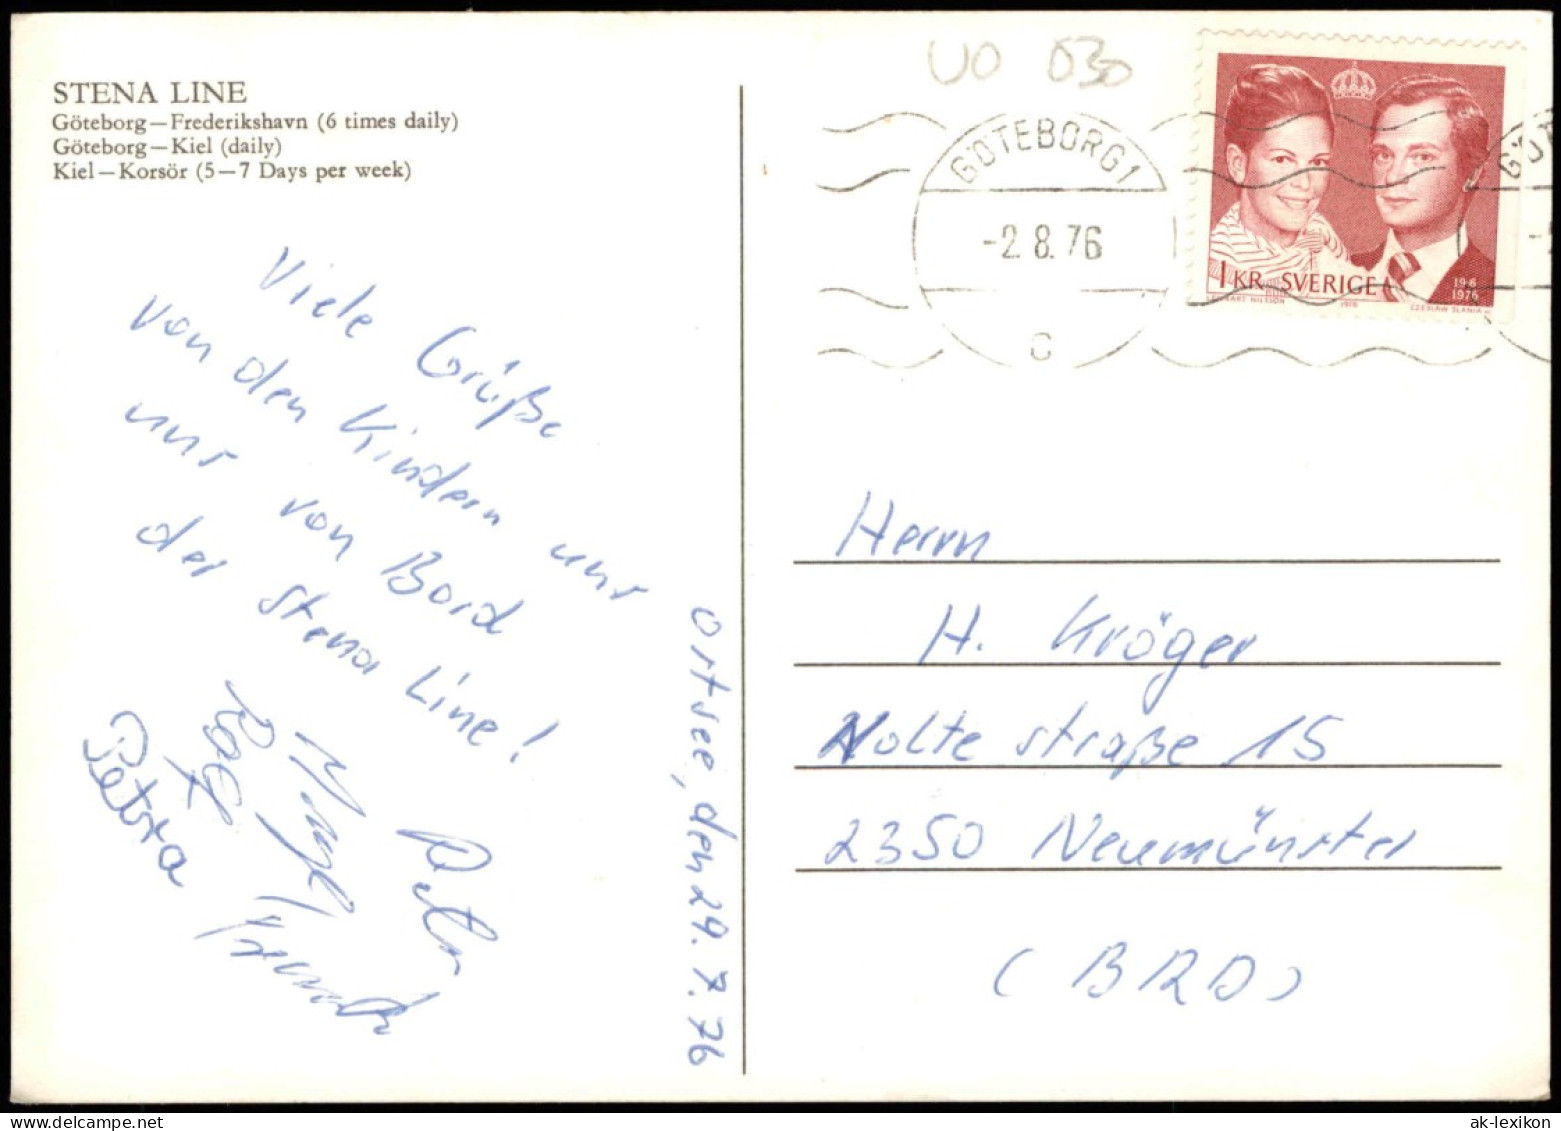 STENA LINE
Göteborg—Frederikshavn (6 times daily)
Göteborg—Kiel (daily)
Kiel—Korsör (5—7 Days per week)
UO 030
GÖTEBORG 1
-2.8.76
C
1 KR SVERIGE
19 6
1976
LENNART NILSSON
1976
CZESLAW SLANIA
Viele Grüße
von den Kindern uns
uns von Bord
der Stena Line!
Petra
Rolf
Peter
Ostsee, den 29.7.76
Herrn
H. Kröger
Nolte straße 15
2350 Neumünster
(BRD)
ak-lexikon